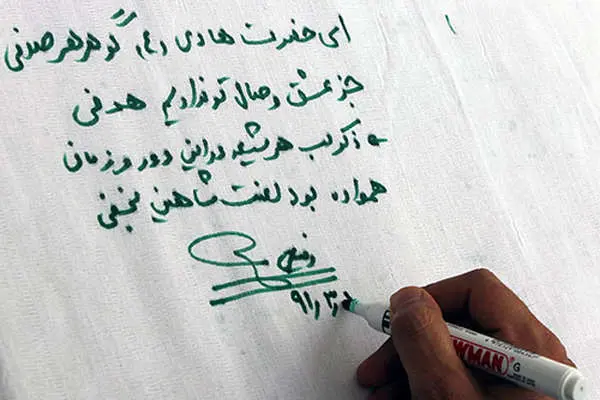 ای حضرت هادی (ع) گوهر هر صدفی
جز عشق و وصال تو نداریم هدفی
ذکر لب هر شیعه در این دور و زمان
همواره بود لعنت شاهین نجفی
۹۱٫۳٫۸
WMAN G